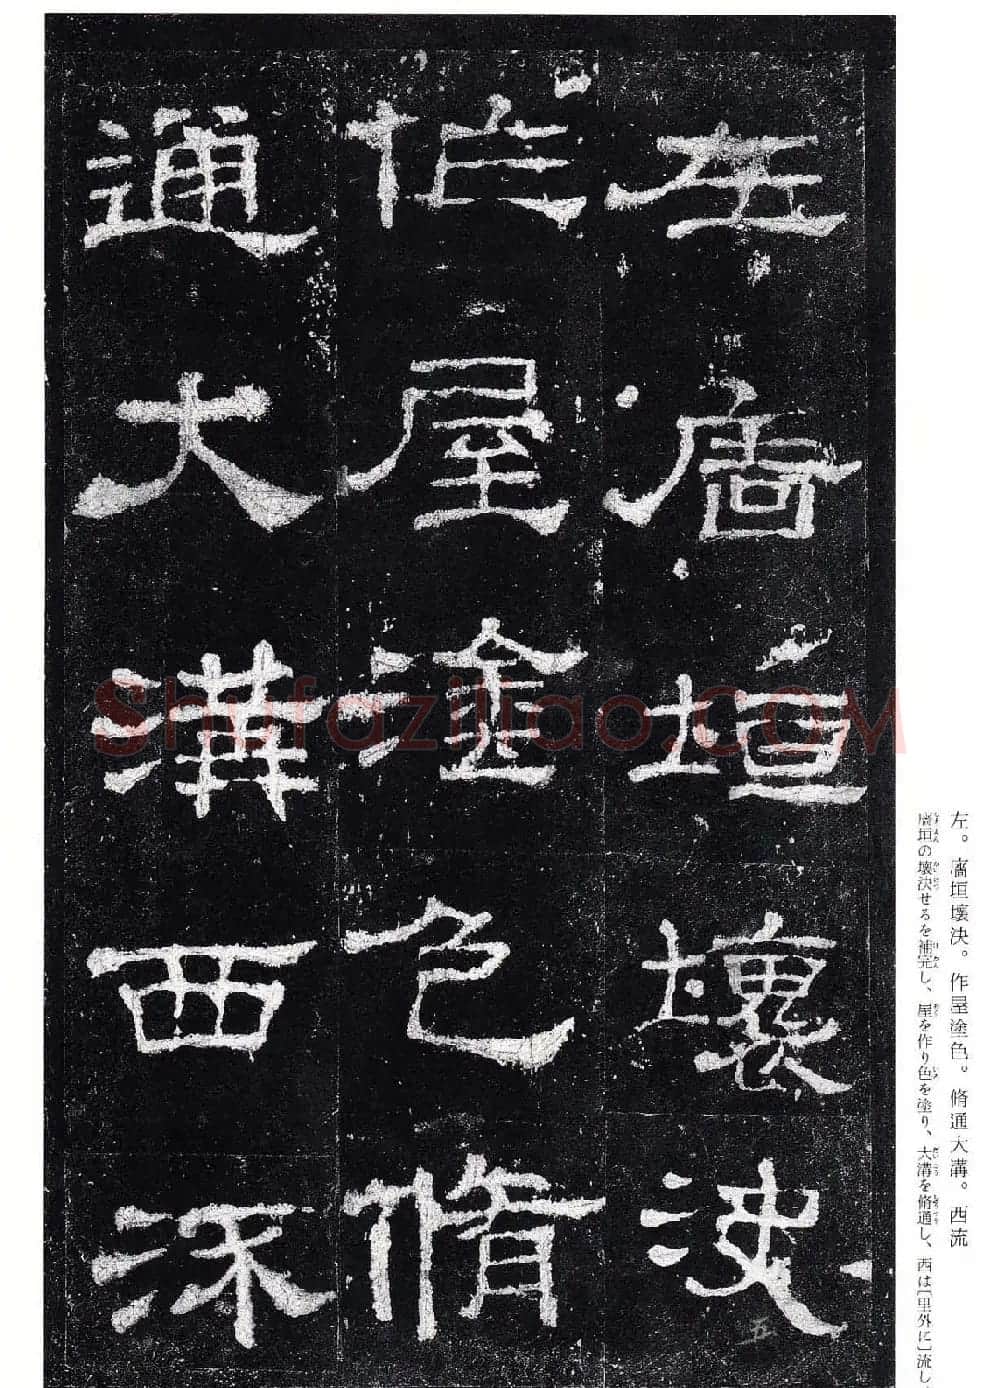 左庯垣壞決
作屋塗色脩
通大溝西流
五
左。庯垣壞決。作屋塗色。脩通大溝。西流
庯垣の壞決せるを補完し、屋を作り色を塗り、大溝を脩通し、西は[里外に]流し、
Shufaziliao.COM